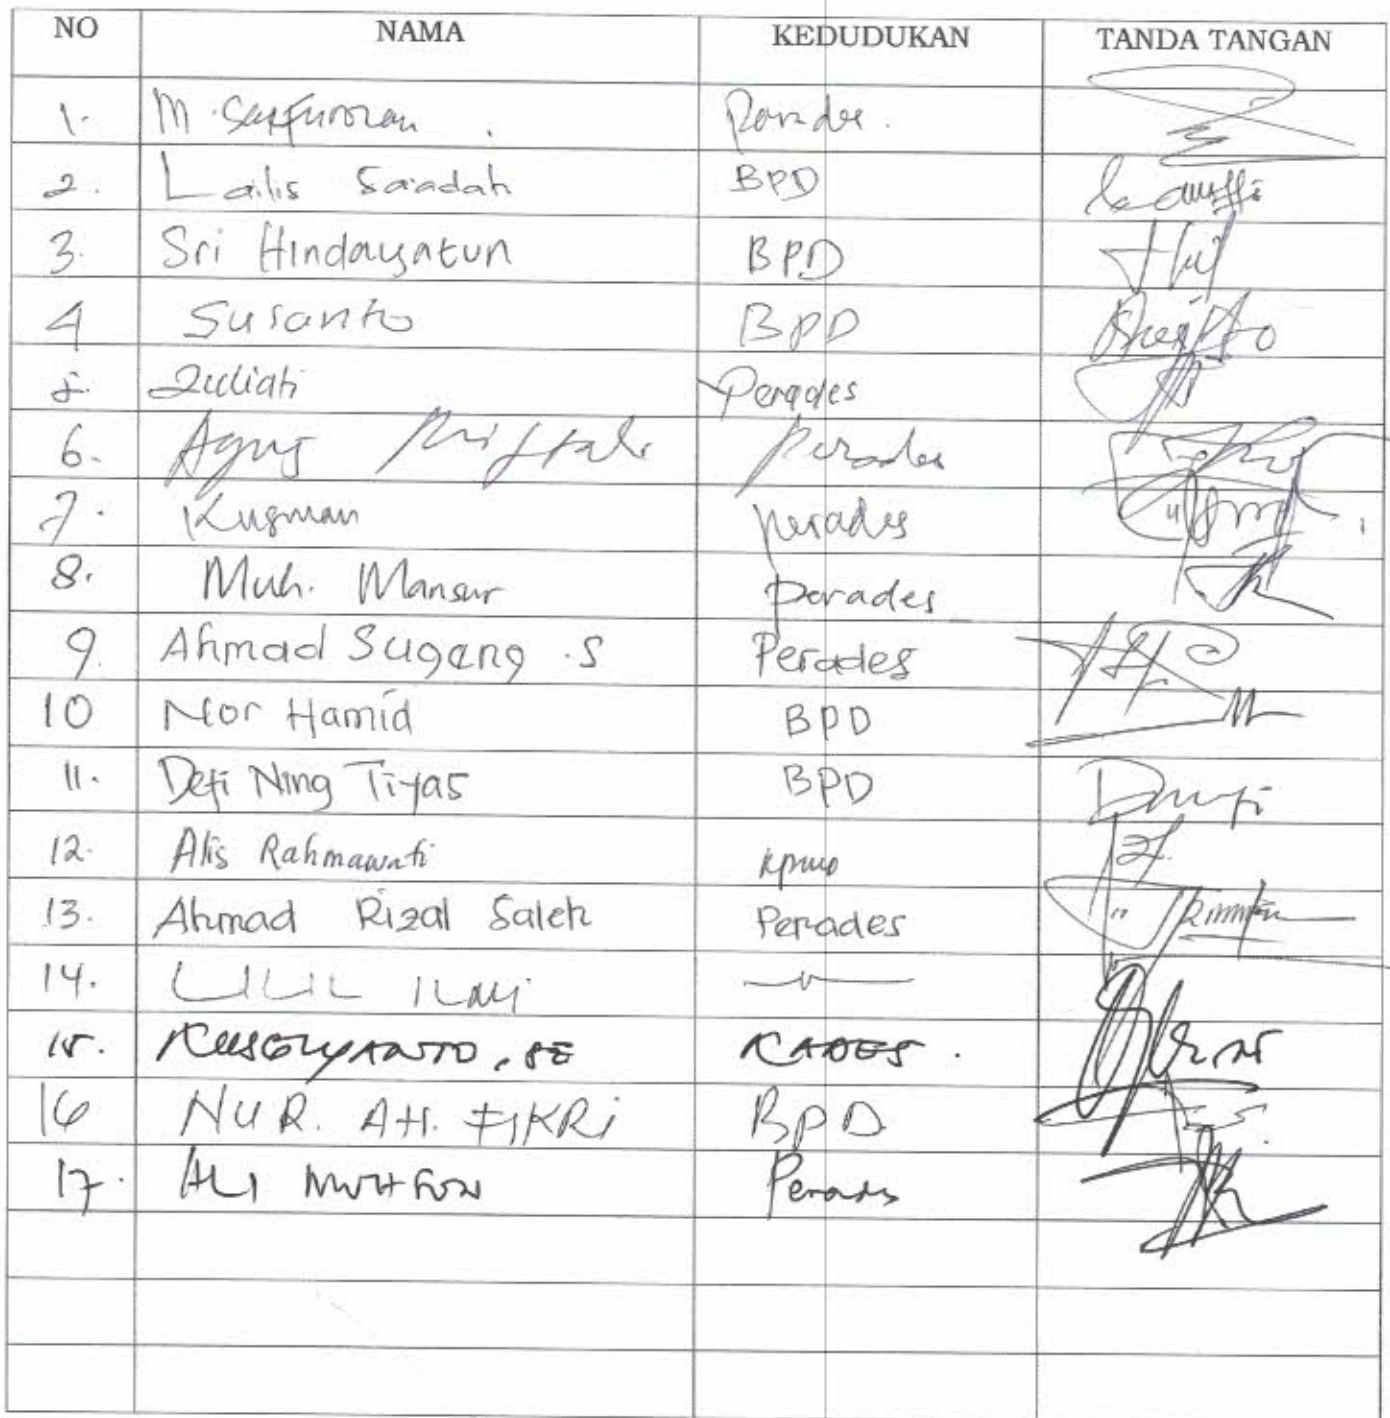 NO NAMA KEDUDUKAN TANDA TANGAN
1. M. Saefurozan Perades.
2. Lailis Saadah BPD
3. Sri Hindayatun BPD
4 Susanto BPD
5. Zuliati Perades
6. Agus Miftah Perades
7. Kusman perades
8. Muh. Mansur perades
9. Ahmad Sugeng .S Perades
10 Nor Hamid BPD
11. Defi Ning Tiyas BPD
12. Alis Rahmawati
13. Ahmad Rizal Saleh Perades
14. LILIK
15. KUSGIYANTO, SE KADES.
16 NUR. AH. FIKRi BPD
17. ALI Perades